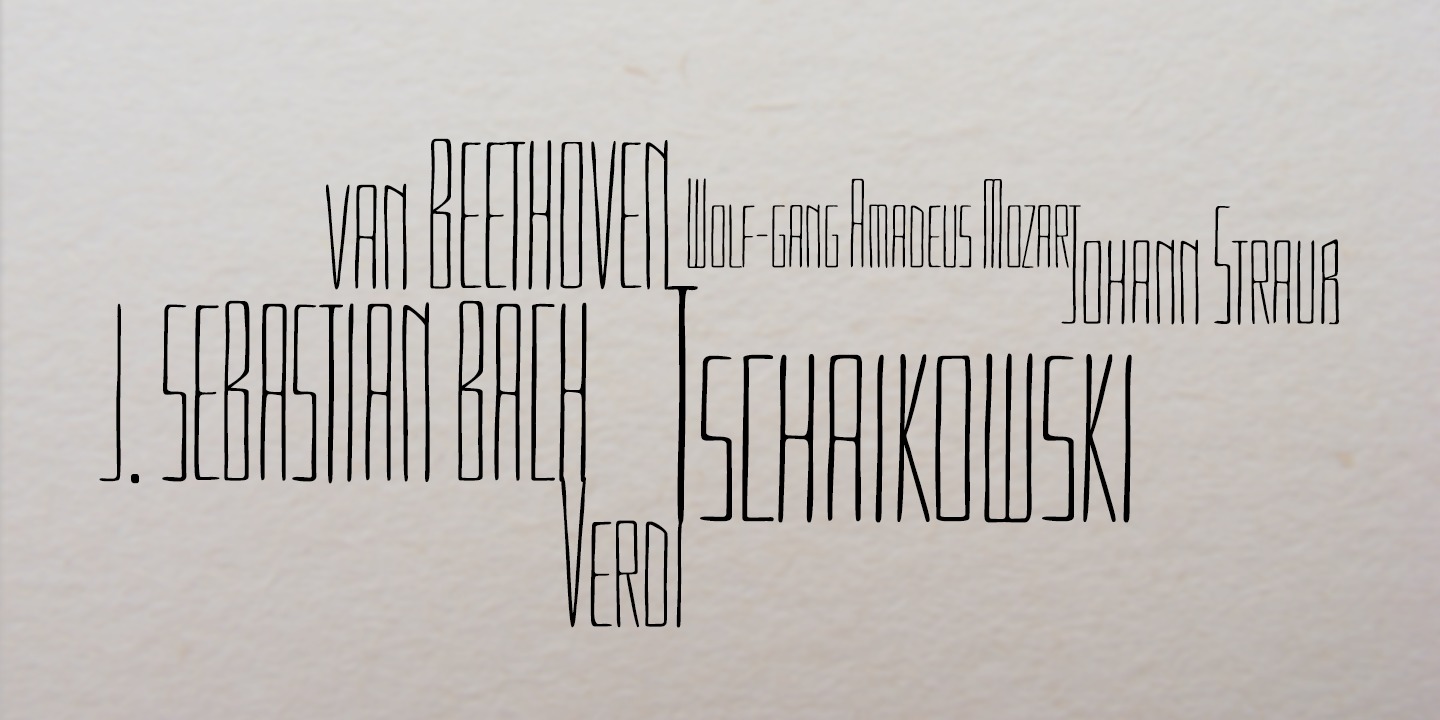 van Beethoven
Wolf-gang Amadeus Mozart
Johann Strauß
J. Sebastian Bach
Tschaikowski
Verdi